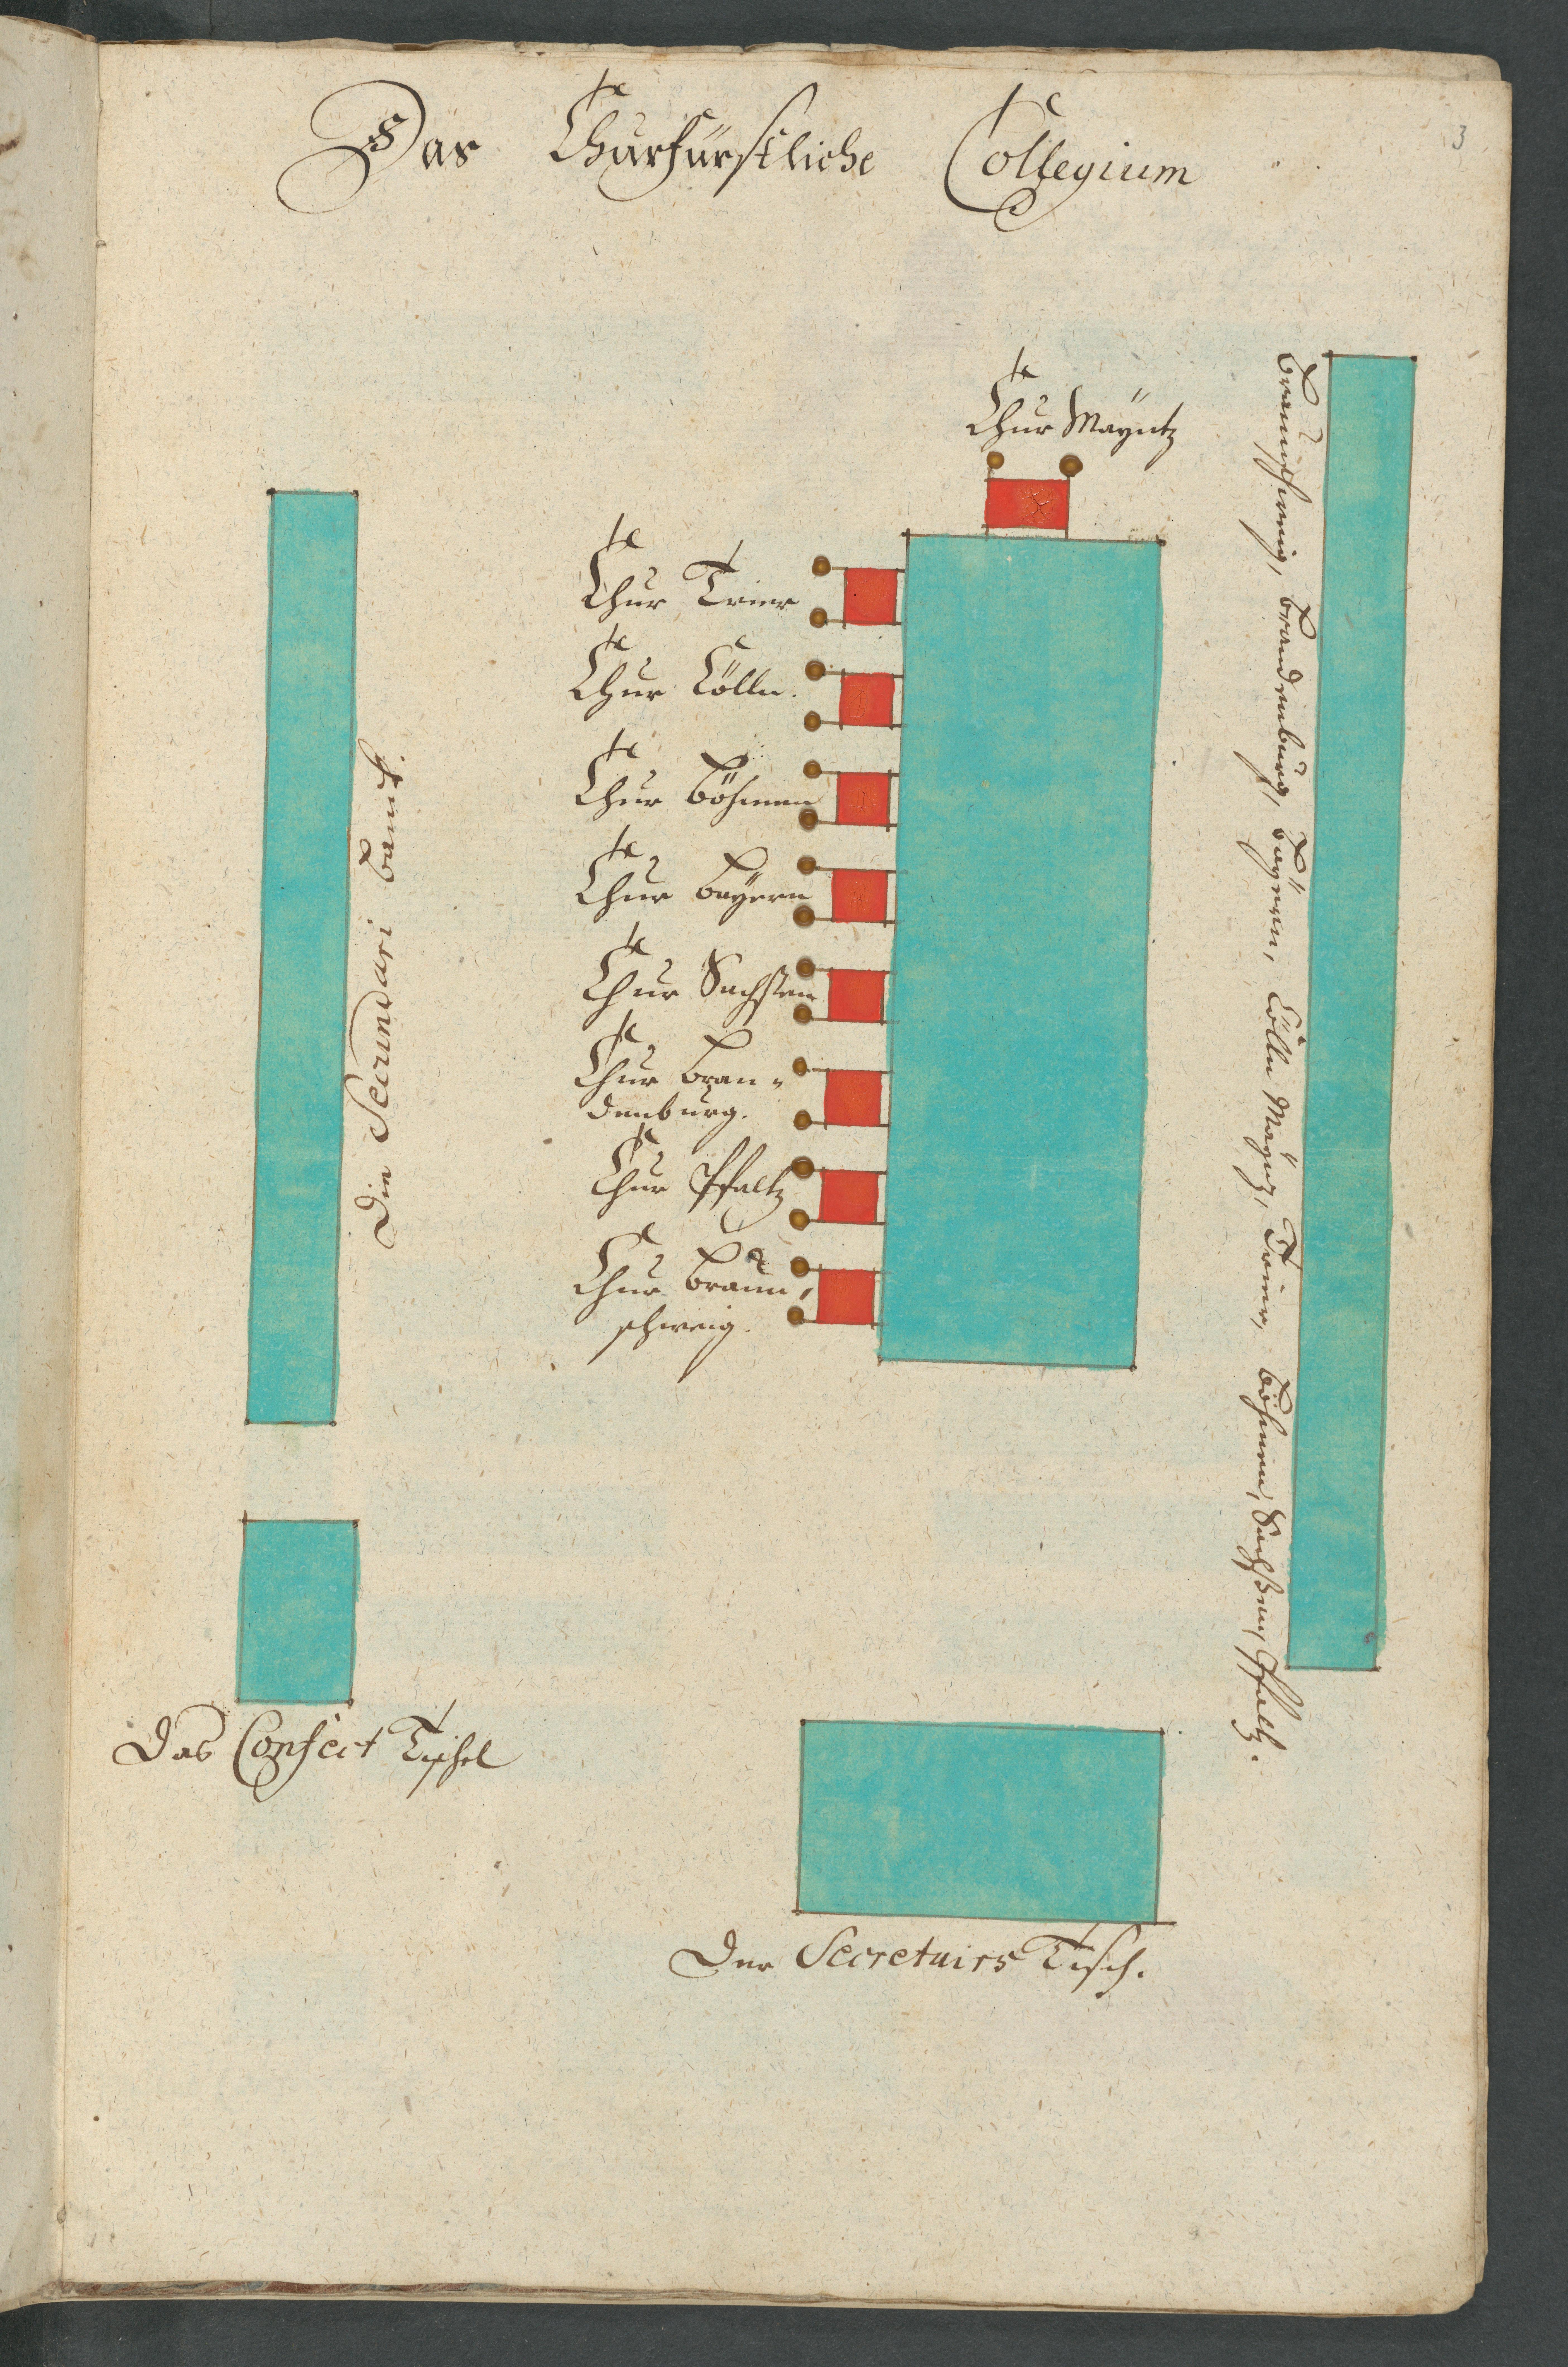 Das Churfürstliche Collegium
3
Chur Mäyntz
Chur Trier
Chur Cölln.
Chur Böhmen
Chur Bäyern
Chur Sachssen
Chur Bran-
denburg.
Chur Pfaltz
Chur Braun,
schweig.
Die Secundari Banck.
Braunschweig, Brandenburg, Bäyern, Cölln Mäyntz, Trier, Böhmen, Sachßen, Pfaltz.
Das Confect Tischel
Der Secretairs Tisch.